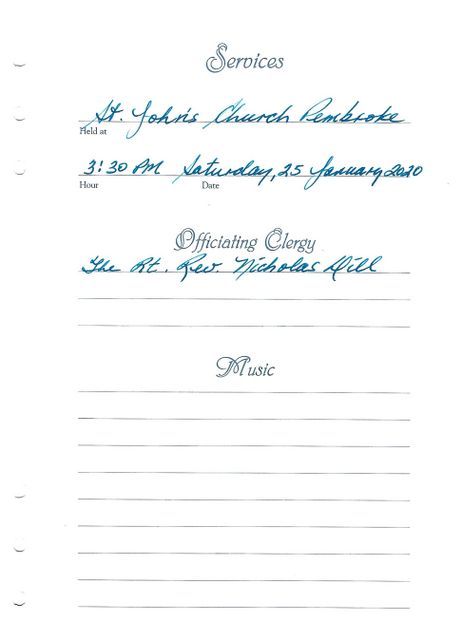 Services
St. John's Church Pembroke
Held at
3:30 PM Saturday, 25 January 2020
Hour Date
Officiating Clergy
The Rt. Rev. Nicholas Dill
Music